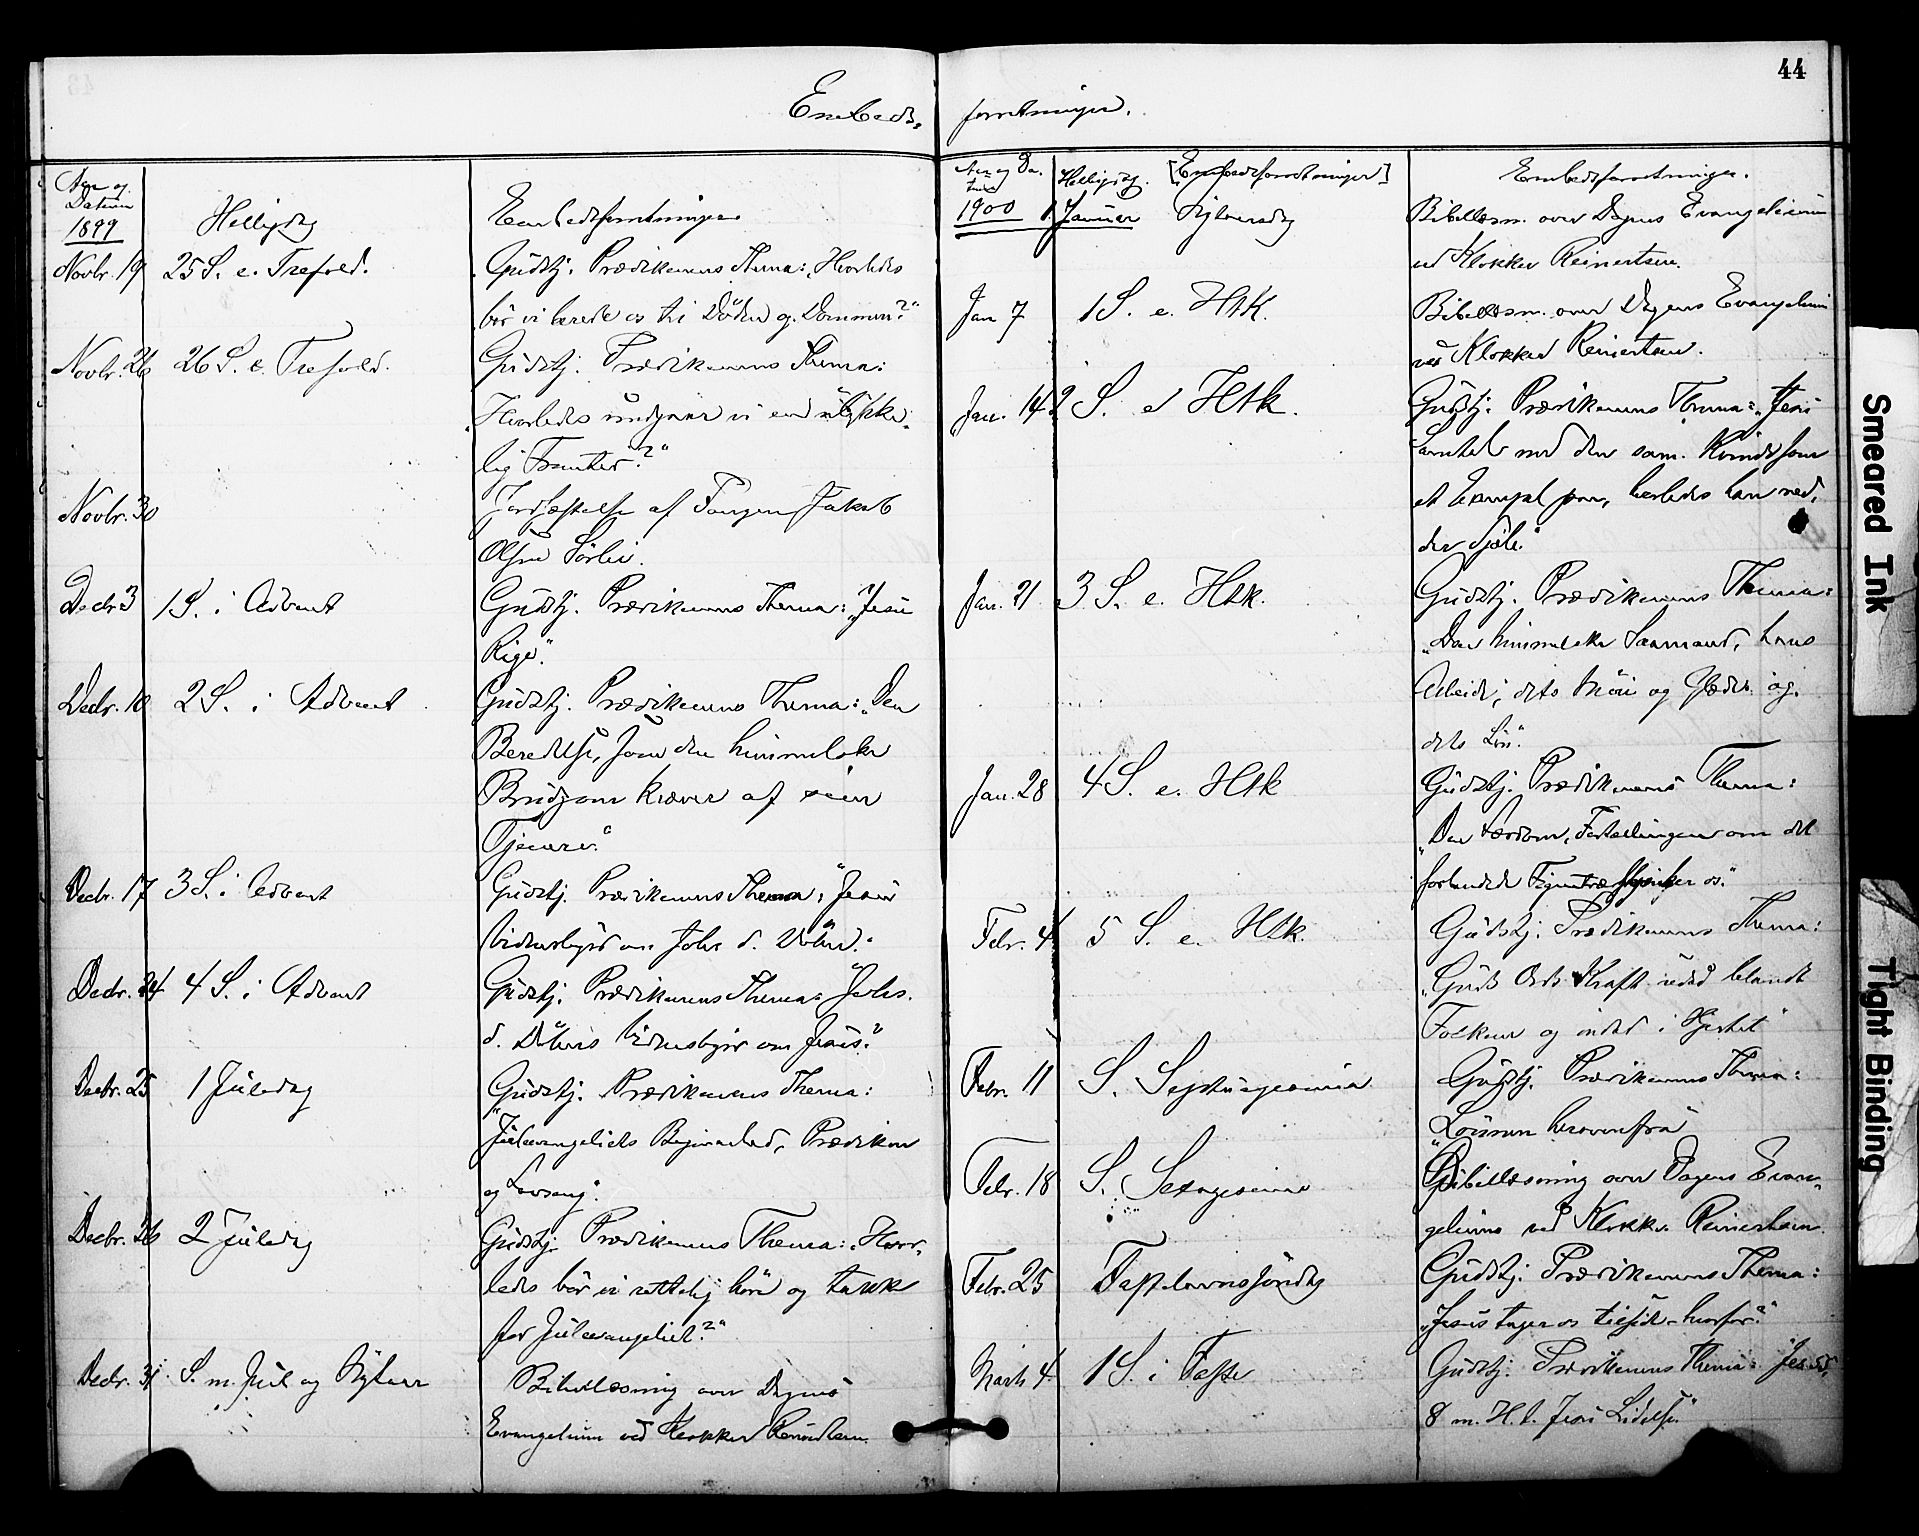 44
Embeds-
forretninger.
Aar og
Datum
1899
Helligdag
Embedsforretninger.
Novbr. 19 25 S. e. Trefold. Gudstj. Prædikenens Thema: „Hvorledes
bør vi berede os til Døden og Dommen?“
Novbr. 26 26 S. e. Trefold. Gudstj. Prædikenens Thema:
„Hvorledes undgaar vi en ulykke-
lig
Novbr. 30 Jordfæstelse af Fangen Jakob
Olsen Sörlie.
Decbr 3 1 S. i Advent Gudstj. Prædikenens Thema: „Jesu
Rige“.
Decbr. 10 2 S. i Advent Gudstj. Prædikenens Thema: „Den
Beredelse, som den himmelske
Brudgom kræver af sine
Tjenere.“
Decbr. 17 3 S. i Advent Gudstj. Prædikenens Thema: „Jesu
Vidnesbyrd om Johs d. Døber.“
Decbr. 24 4 S. i Advent Gudstj. Prædikenens Thema: „Johs.
d. Döbers Vidnesbyrd om Jesus.“
Decbr. 25 1 Juledag Gudstj. Prædikenens Thema:
„Juleevangeliets Begivenhed, Prædiken
og Lovsang“.
Decbr. 26 2 Juledag Gudstj. Prædikenens Thema: „Hvor-
ledes bør vi rettelig höre og takke
for Juleevangeliet?“
Decbr. 31 S. m. Jul og Nytaar Bibellæsning over Dagens
Evangelium ved Klokker Reinertsen.
Aar og Da-
tum
Helligdag. [Embedsforretninger] Embedsforretninger.
1900 1 Januar Nytaarsdag Bibellæsn. over Dagens Evangelium
ved Klokker Reinertsen.
Jan 7 1 S. e. HtK. Bibellæsn. over Dagens Evangelium
ved Klokker Reinertsen.
Jan. 14 2 S. e HtK. Gudstj. Prædikenens Thema: „Jesu
Samtale med den sam. Kvinde som
et Exempel paa, hvorledes han ved,
der Sjæle“
Jan. 21 3 S. e. Htk. Gudstj. Prædikenens Thema:
„Den himmelske Saamand, hans
Arbeide, dets Möie og Glæde og
dets Lön“.
Jan. 28 4 S. e. Htk Gudstj. Prædikenens Thema:
„Den Lærdom, Fortællingen om det
forbandede Figentræ skjænker os.“
Febr. 4 5 S. e. Htk. Gudstj. Prædikenens Thema:
„Guds Ords Kraft udad blandt
Folkene og indad i Hjertet“
Febr. 11 S. Septuagesima Gudstj. Prædikenens Thema:
„Lönnen herovenfra“
Febr. 18 S. Sexagesima Bibellæsning over Dagens Evan-
gelium ved Klokker Reinertsen.
Febr. 25 Fastelavnssöndag Gudstj. Prædikenens Thema:
„Jesus tager os tilside – hvorfor?“
Marts 4 1 S. i Faste Gudstj. Prædikenens Thema: Jes 53,
8 m. H. t. Jesu Lidelse.“
Smeared Ink
Tight Binding